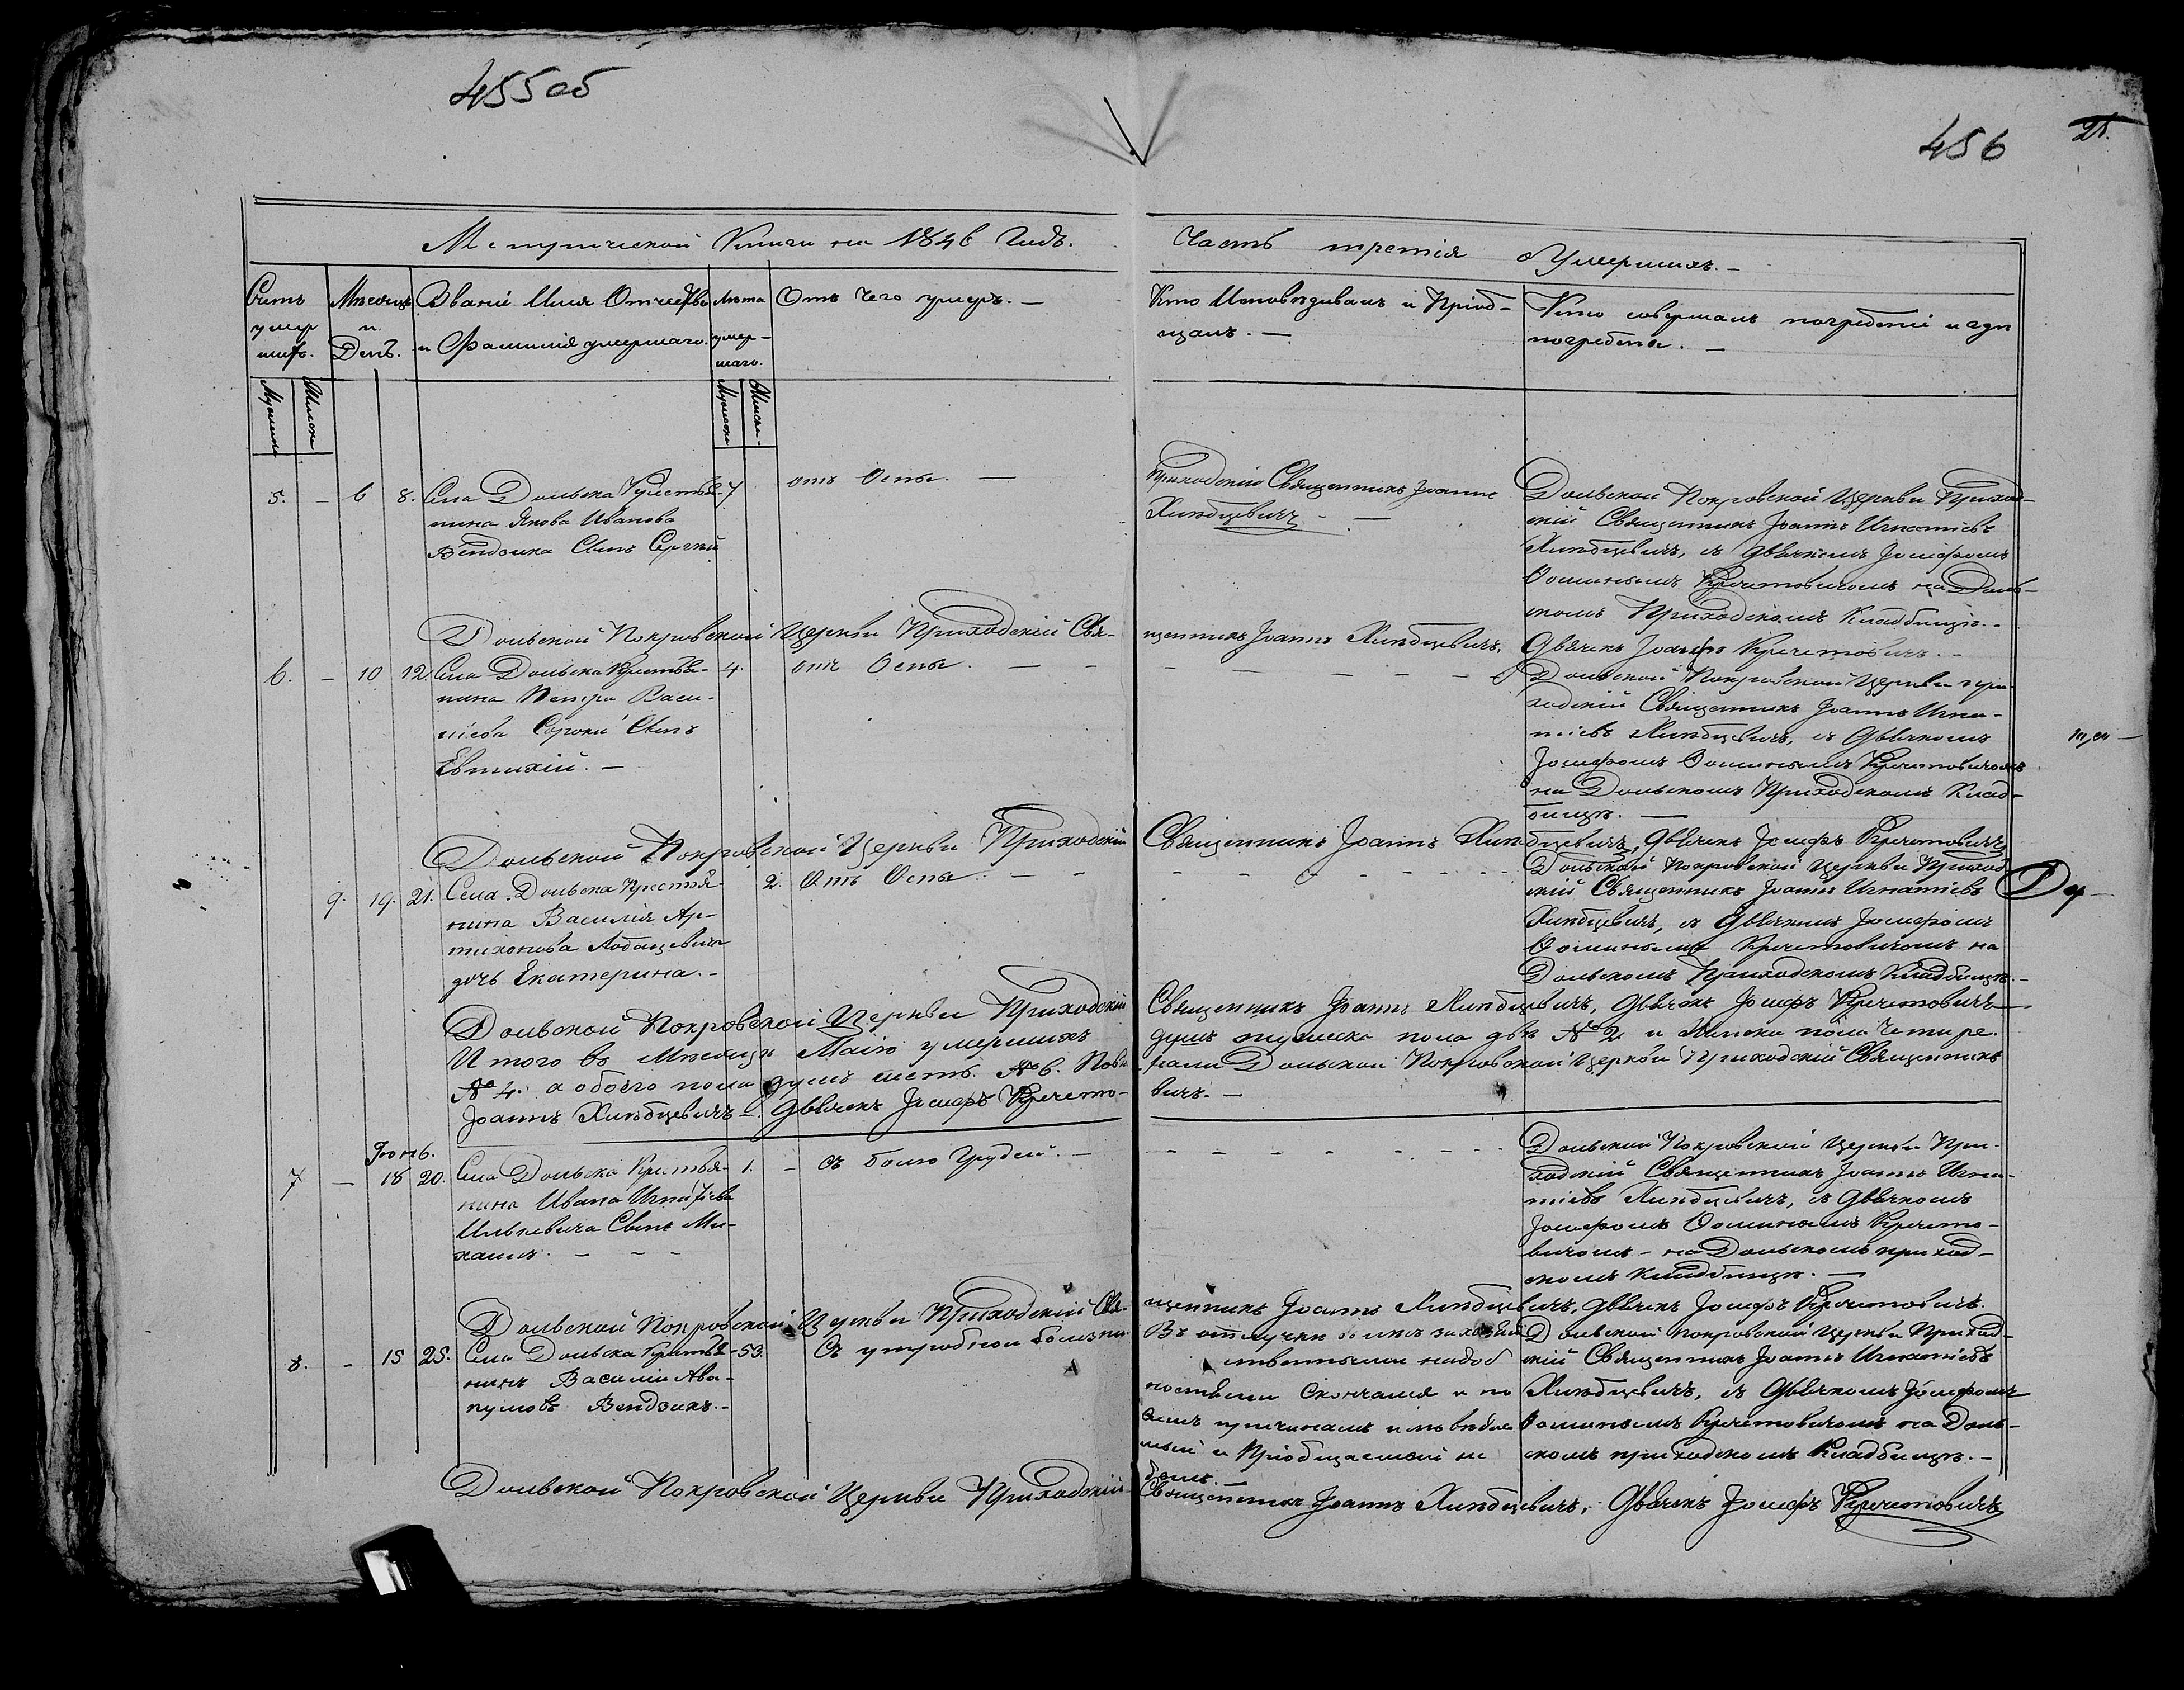 455 об
456
21.
Метрической Книги на 1846 Годъ.
Часть третія о Умершихъ. —
Счетъ умершихъ.
Мѣсяцъ и День.
Званіе Имя Отчество и Фамилія умершаго.
Лѣта умершаго.
Отъ Чего умеръ. —
Кто Исповѣдивалъ и Пріобщалъ. —
Кто совершалъ погребеніе и гдѣ погребены. —
Мужеска
Женска
Мужеска
Женска
5. — 6 8. Села Дольска Крестья- 7
нина Якова Иванова
Вендзика Сынъ Сергий
отъ Оспы. —
Приходскій Священникъ Іоаннъ
Хлибцевичъ —
Дольской Покровской Церкви Приход-
скій Священникъ Іоаннъ Игнатіевъ
Хлибцевичъ, съ Дьячкомъ Іосифомъ
Фоминымъ Кречетовичомъ на Доль-
скомъ Приходскомъ Кладбищѣ. -
Дольской Покровской Церкви Приходскій Свя-
щенникъ Іоаннъ Хлибцевичъ, Дьячекъ Іосифъ Кречетовичъ. -
6. — 10 12 Села Дольска Крестья- 4.
нина Петра Васи-
ліева Сороки Сынъ
Евтихій. —
отъ Оспы. —
Дольской Покровской Церкви при-
ходскій Священникъ Іоаннъ Игна-
тіевъ Хлибцевичъ, съ Дьячкомъ
Іосифомъ Фоминымъ Кречетовичомъ
на Дольскомъ Приходскомъ Клад-
бищѣ. —
Дольской Покровской Церкви Приходскій Священникъ Іоаннъ Хлибцевичъ, Дьячекъ Іосифъ Кречетовичъ
9. 19. 21. Села Дольска Крестья- 2.
нина Василія Ар-
тихонова
дочь Екатерина. -
Отъ Оспы. —
Дольской Покровской Церкви Приход
скій Священникъ Іоаннъ Игнатіевъ
Хлибцевичъ, съ Дьячкомъ Іосифомъ
Фоминымъ Кречетовичомъ на
Дольскомъ Приходскомъ Кладбищѣ. -
Дольской Покровской Церкви Приходскій Священникъ Іоаннъ Хлибцевичъ, Дьячекъ Іосифъ Кречетовичъ
Итого въ Мѣсяцѣ Маію умершихъ душъ мужеска пола двѣ № 2 и Женска пола Четире.
№ 4. а обоего пола душъ шесть. № 6. Дольской Покровской Церкви Приходскій Священникъ
Іоаннъ Хлибцевичъ —. Дьячекъ Іосифъ Кречето-
вичъ. —
Іюнь.
7 — 18 20. Села Дольска Крестья- 1. —
нина Ивана Игнатіева
Илькевича Сынъ Ми-
хаилъ. — — —
Съ болю Грудей. —
Дольской Покровской Церкви При-
ходскій Священникъ Іоаннъ Игна-
тіевъ Хлибцевичъ, съ Дьячкомъ
Іосифомъ Фоминымъ Кречето-
вичомъ — на Дольскомъ приход-
скомъ кладбищѣ. —
Дольской Покровской Церкви Приходскій Свя-
щенникъ Іоаннъ Хлибцевичъ, Дьячекъ Іосифъ Кречетовичъ.
8. — 15 25. Села Дольска Крестья- 53.
нинъ Василій Ава-
кумовъ Вендзикъ. -
Съ утробной болезни
Въ отлучки
надоб
ностьми Скончался и по
симъ причинамъ
и Пріобщаемый не
былъ. —
Дольской покровской Церкви Приход-
скій Священникъ Іоаннъ Игнатіевъ
Хлибцевичъ, съ Дьячкомъ Іосифомъ
Фоминымъ Кречетовичомъ на Доль-
скомъ приходскомъ Кладбищѣ. -
Дольской Покровской Церкви Приходскій
Священникъ Іоаннъ Хлибцевичъ, Дьячекъ Іосифъ Кречетовичъ